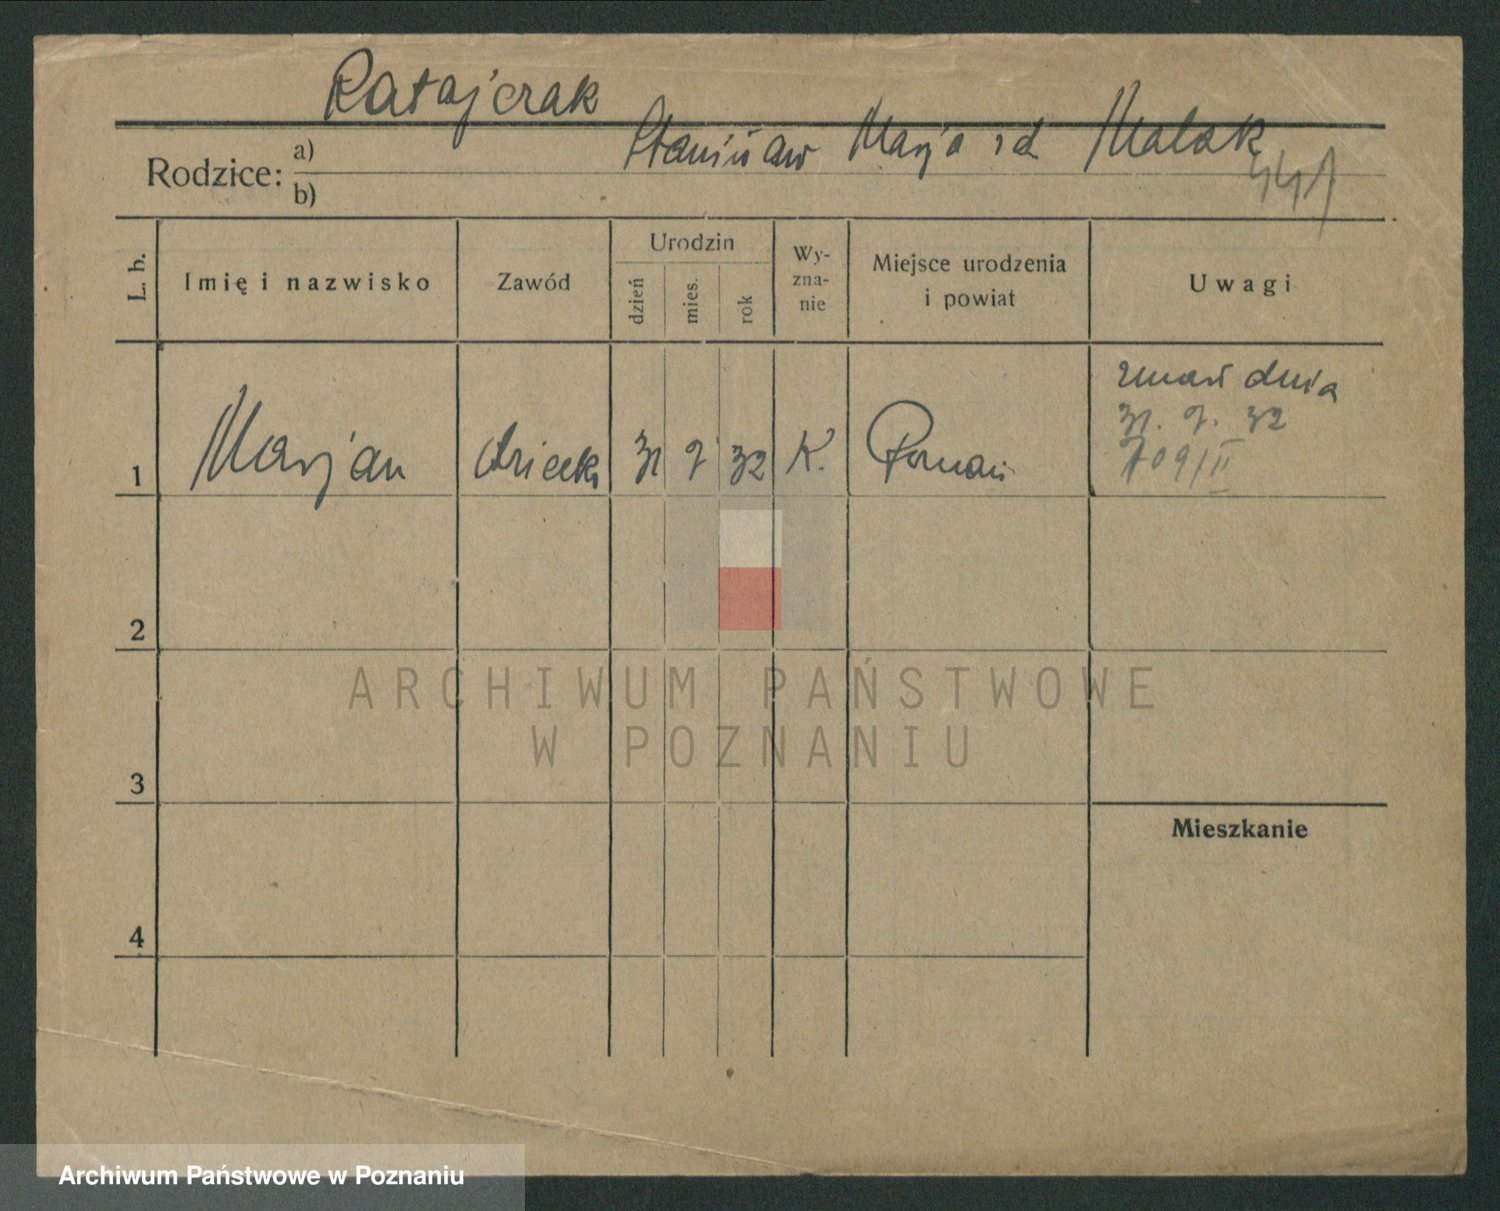 Ratajczak
Rodzice: a) Stanisław Marja z d Malak
b)
L. b.
Imię i nazwisko
Zawód
Urodzin
dzień
mies.
rok
Wy-
zna-
nie
Miejsce urodzenia
i powiat
Uwagi
1 Marjan dziecko 31 7 32 K. Poznań
zmarł dnia
31. 7. 32
709/II
2
3
4
Mieszkanie
ARCHIWUM PAŃSTWOWE
W POZNANIU
Archiwum Państwowe w Poznaniu